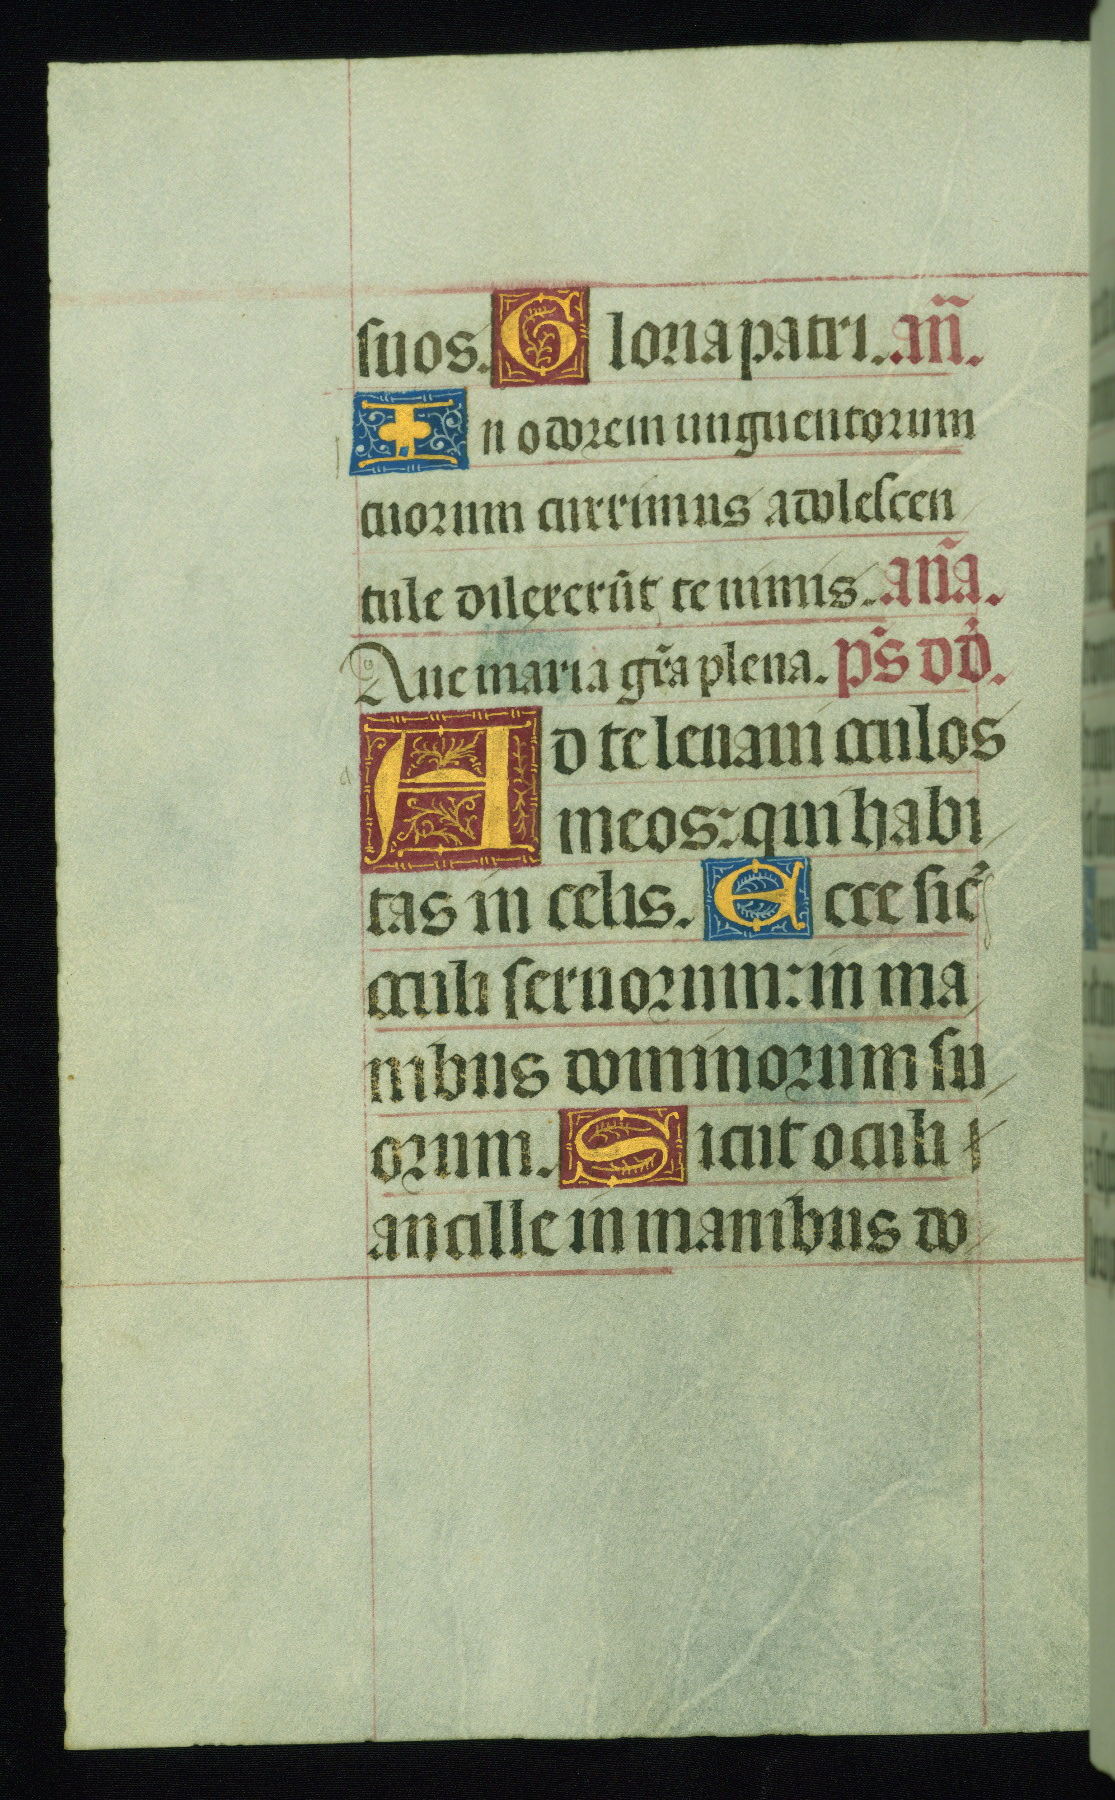 suos. Gloria patri. añ.
In odorem unguentorum
tuorum currimus adolescen
tule dilexerũt te nimis. aña.
Aue maria gr̃a plena. ps̃ dd̃.
Ad te leuaui oculos
meos: qui habi
tas in celis. Ecce sic̃
oculi seruorum: in ma
nibus dominorum su
orum. Sicut oculi
ancille in manibus do